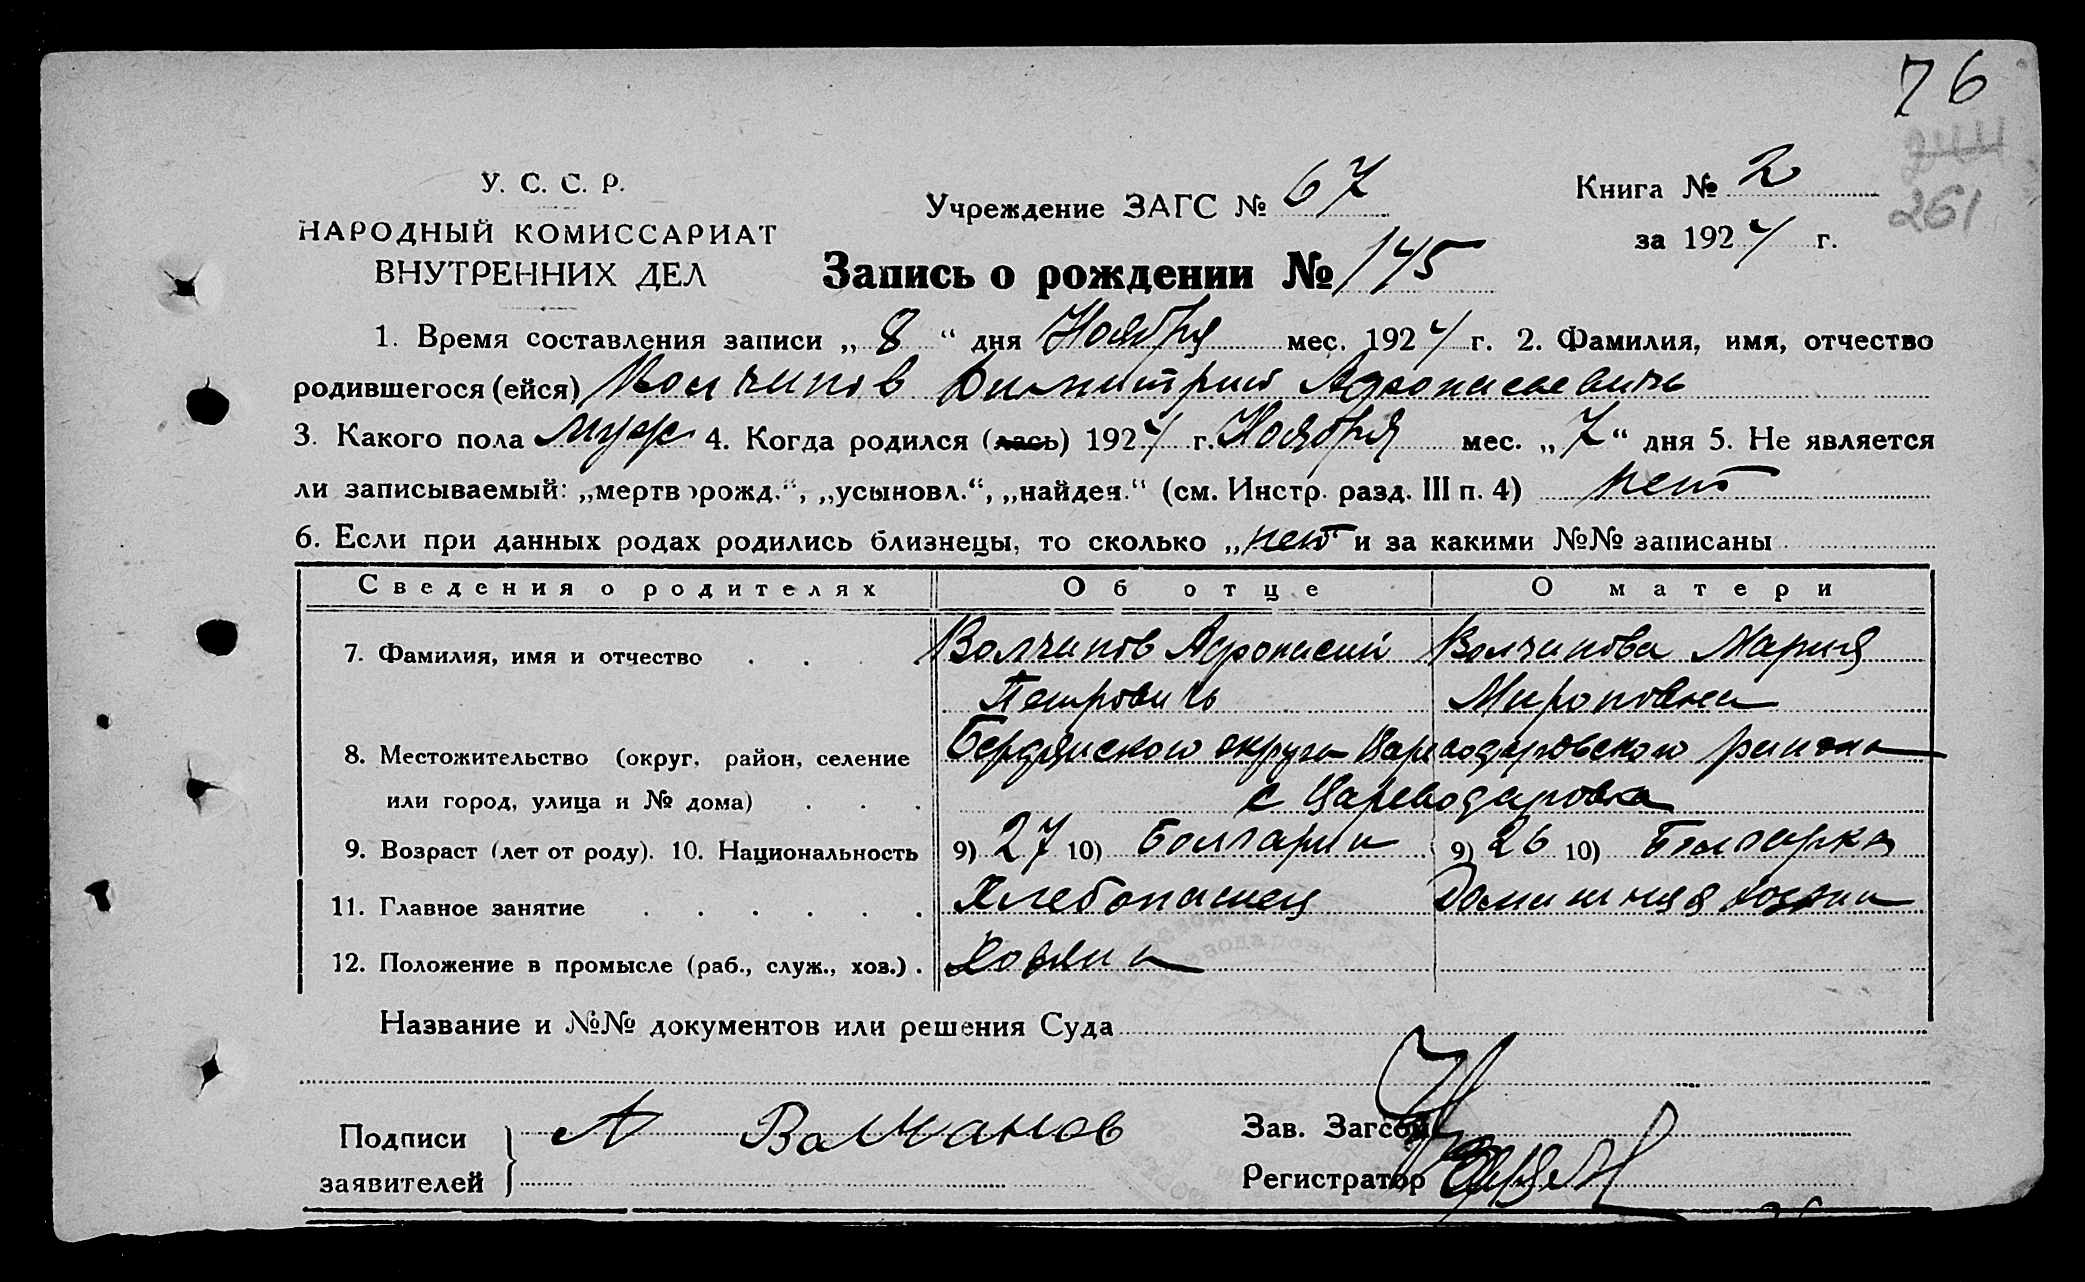 76
244
У. С. С. Р.
Учреждение ЗАГС № 67
Книга № 2
261
НАРОДНЫЙ КОМИССАРИАТ
за 1924 г.
ВНУТРЕННИХ ДЕЛ
Запись о рождении № 145
1. Время составления записи „ 8 “ дня Ноября мес. 1924 г. 2. Фамилия, имя, отчество
родившегося (ейся) Волчанов Димитрий Афонасиевичъ
3. Какого пола муж 4. Когда родился (лась) 1924 г. Ноября мес. „ 7 “ дня 5. Не является
ли записываемый: „мертворожд.“, „усыновл.“, „найден.“ (см. Инстр. разд. III п. 4) нет
6. Если при данных родах родились близнецы, то сколько „ нет и за какими №№ записаны
Сведения о родителях Об отце О матери
7. Фамилия, имя и отчество Волчанов Афонасий Волчанова Мария
Петровичъ Мироновна
8. Местожительство (округ, район, селение Бердянского округа Цареводаровского района
или город, улица и № дома) с Цареводаровка
9. Возраст (лет от роду). 10. Национальность 9) 27 10) Болгарин 9) 26 10) Болгарка
11. Главное занятие Хлебопашец Домашняя хозяйка
12. Положение в промысле (раб., служ., хоз.) Хозяин
Название и №№ документов или решения Суда
Подписи А Валчанов Зав. Загсом
заявителей Регистратор